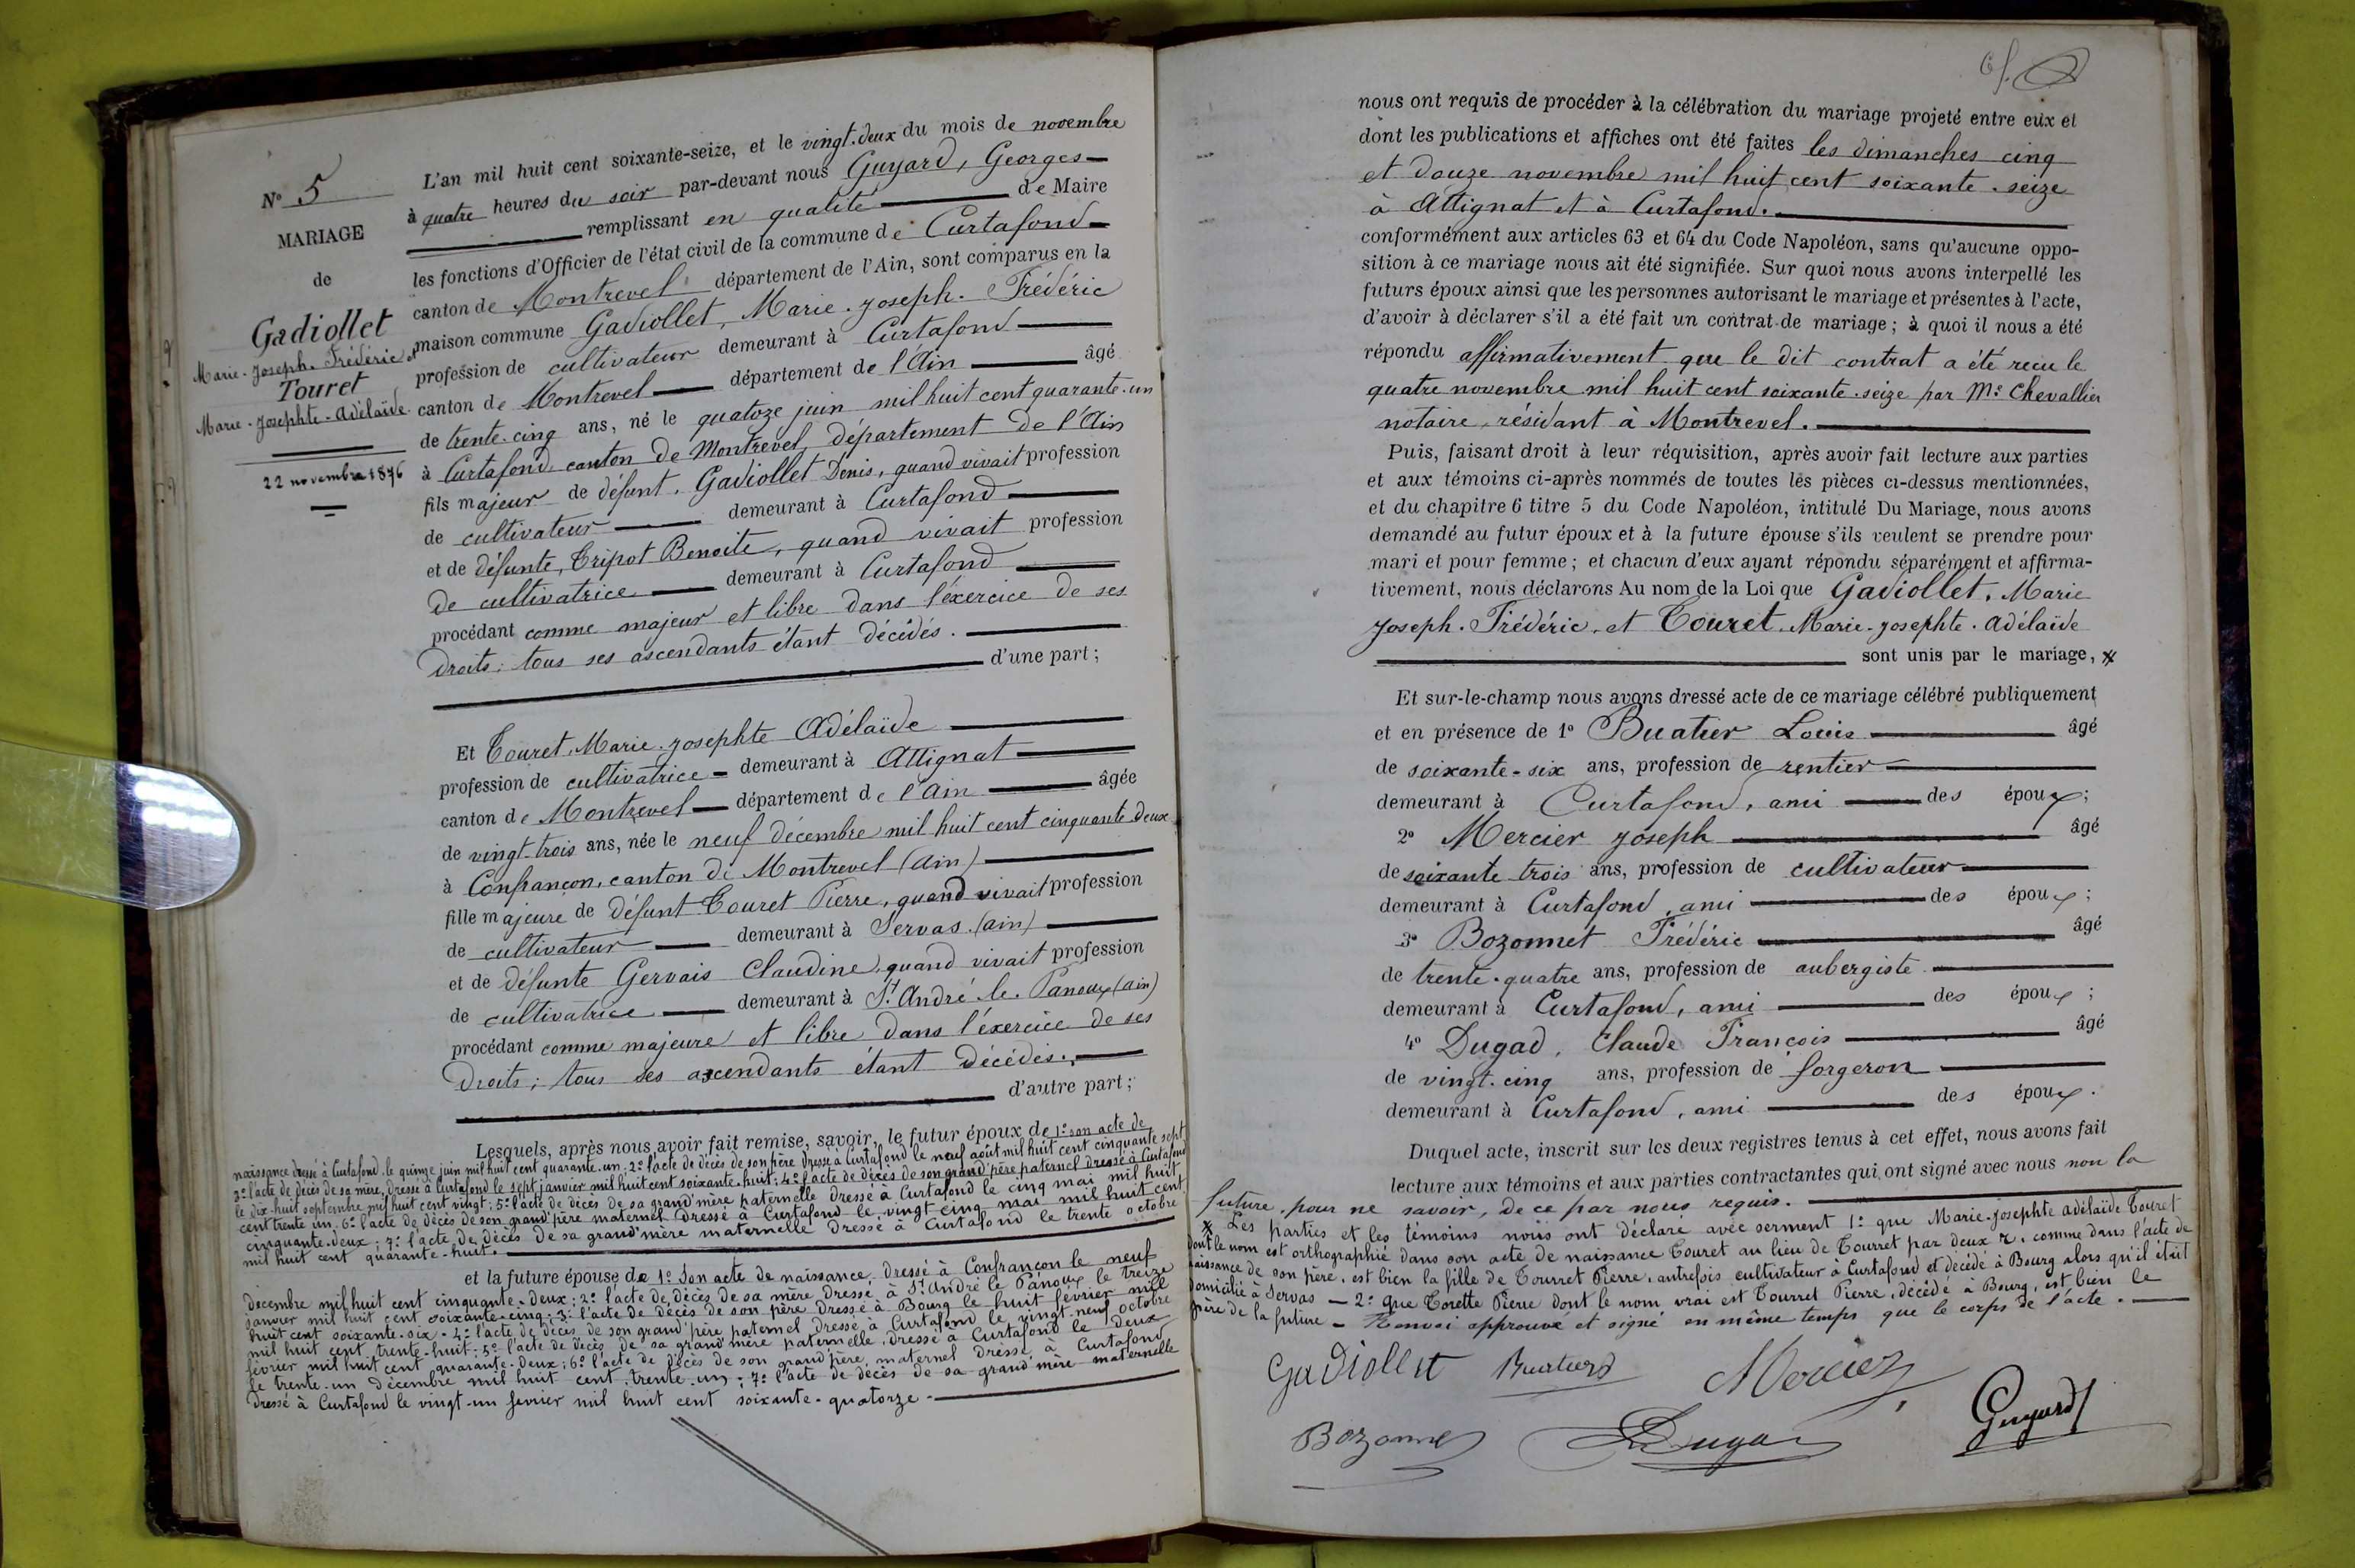 N° 5
MARIAGE
de
Gadiollet
Marie-Joseph-Frédéric et
Touret
Marie-Josephte-Adélaïde
22 novembre 1876
L'an mil huit cent soixante-seize, et le vingt-deux du mois de novembre
à quatre heures du soir par-devant nous Guyard, Georges
remplissant en qualité de Maire
les fonctions d'Officier de l'état civil de la commune de Curtafond
canton de Montrevel département de l'Ain, sont comparus en la
maison commune Gadiollet, Marie-Joseph-Frédéric
profession de cultivateur demeurant à Curtafond
canton de Montrevel département de l'Ain âgé
de trente-cinq ans, né le quatoze juin mil huit cent quarante-un
à Curtafond canton de Montrevel département de l'Ain
fils majeur de défunt, Gadiollet Denis, quand vivait profession
de cultivateur demeurant à Curtafond
et de défunte, Tripot Benoite, quand vivait profession
de cultivatrice demeurant à Curtafond
procédant comme majeur et libre dans l'éxercice de ses
droits; tous ses ascendants étant décédés.
d'une part;
Et Touret, Marie-Josephte Adélaïde
profession de cultivatrice demeurant à Attignat
canton de Montrevel département de l'Ain âgée
de vingt-trois ans, née le neuf décembre mil huit cent cinquante deux
à Confrançon, canton de Montrevel (Ain)
fille majeure de défunt Touret Pierre, quand vivait profession
de cultivateur demeurant à Servas (Ain)
et de défunte Gervais Claudine, quand vivait profession
de cultivatrice demeurant à St André-le-Panoux (Ain)
procédant comme majeure et libre dans l'éxercice de ses
droits; tous ses ascendants étant décédés.
d'autre part;
Lesquels, après nous avoir fait remise, savoir, le futur époux de 1° son acte de
naissance dressé à Curtafond le quinze juin mil huit cent quarante-un; 2° l'acte de décès de son père dressé à Curtafond le neuf août mil huit cent cinquante sept
3° l'acte de décès de sa mère, dressé à Curtafond le sept janvier mil huit cent soixante-huit; 4° l'acte de décès de son grand'père paternel dressé à Curtafond
le dix-huit septembre mil huit cent vingt; 5° l'acte de décès de sa grand'mère paternelle dressé à Curtafond le cinq mai mil huit
cent trente un; 6° l'acte de décès de son grand'père maternel dressé à Curtafond le vingt-cinq mai mil huit cent
cinquante-deux; 7° l'acte de décès de sa grand'mère maternelle dressé à Curtafond le trente octobre
mil huit cent quarante-huit.
et la future épouse de 1° Son acte de naissance, dressé à Confrançon le neuf
décembre mil huit cent cinquante-deux; 2° l'acte de décès de sa mère dressé à St André le Panoux le treize
janvier mil huit cent soixante-cinq; 3° l'acte de décès de son père dressé à Bourg le huit février mil
huit cent soixante-six; 4° l'acte de décès de son grand'père paternel dressé à Curtafond le vingt-neuf octobre
mil huit cent trente-huit; 5° l'acte de décès de sa grand'mère paternelle dressé à Curtafond le deux
février mil huit cent quarante-deux; 6° l'acte de décès de son grand'père maternel dressé à Curtafond
le trente-un décembre mil huit cent trente-un; 7° l'acte de décès de sa grand'mère maternelle
dressé à Curtafond le vingt-un fevrier mil huit cent soixante-quatorze.
nous ont requis de procéder à la célébration du mariage projeté entre eux et
dont les publications et affiches ont été faites les dimanches cinq
et douze novembre mil huit cent soixante-seize
à Attignat et à Curtafond.
conformément aux articles 63 et 64 du Code Napoléon, sans qu'aucune oppo-
sition à ce mariage nous ait été signifiée. Sur quoi nous avons interpellé les
futurs époux ainsi que les personnes autorisant le mariage et présentes à l'acte,
d'avoir à déclarer s'il a été fait un contrat de mariage; à quoi il nous a été
répondu affirmativement que le dit contrat a été reçu le
quatre novembre mil huit cent soixante-seize par Me Chevallier
notaire, résidant à Montrevel.
Puis, faisant droit à leur réquisition, après avoir fait lecture aux parties
et aux témoins ci-après nommés de toutes les pièces ci-dessus mentionnées,
et du chapitre 6 titre 5 du Code Napoléon, intitulé Du Mariage, nous avons
demandé au futur époux et à la future épouse s'ils veulent se prendre pour
mari et pour femme; et chacun d'eux ayant répondu séparément et affirma-
tivement, nous déclarons Au nom de la Loi que Gadiollet, Marie
Joseph-Frédéric, et Touret, Marie-Josephte-Adélaïde
sont unis par le mariage, x
Et sur-le-champ nous avons dressé acte de ce mariage célébré publiquement
et en présence de 1° Buatier Louis âgé
de soixante-six ans, profession de rentier
demeurant à Curtafond, ami des époux;
2° Mercier Joseph âgé
de soixante trois ans, profession de cultivateur
demeurant à Curtafond, ami des époux;
3° Bozonnet Frédéric âgé
de trente-quatre ans, profession de aubergiste
demeurant à Curtafond, ami des époux;
4° Dugad, Claude François âgé
de vingt-cinq ans, profession de forgeron
demeurant à Curtafond, ami des époux.
Duquel acte, inscrit sur les deux registres tenus à cet effet, nous avons fait
lecture aux témoins et aux parties contractantes qui ont signé avec nous non la
future, pour ne savoir, de ce par nous requis.
x Les parties et les témoins nous ont déclaré avec serment 1° que Marie-Josephte Adélaïde Touret
dont le nom est orthographié dans son acte de naissance Touret au lieu de Tourret par deux r, comme dans l'acte de
naissance de son père, est bien la fille de Tourret Pierre, autrefois cultivateur à Curtafond et décédé à Bourg alors qu'il était
domicilié à Servas — 2° que Torette Pierre dont le nom vrai est Tourret Pierre, décédé à Bourg, est bien le
père de la future — Renvoi approuvé et signé en même temps que le corps de l'acte.
Gadiollet Buatier Mercier
Bozonnet Dugad Guyard